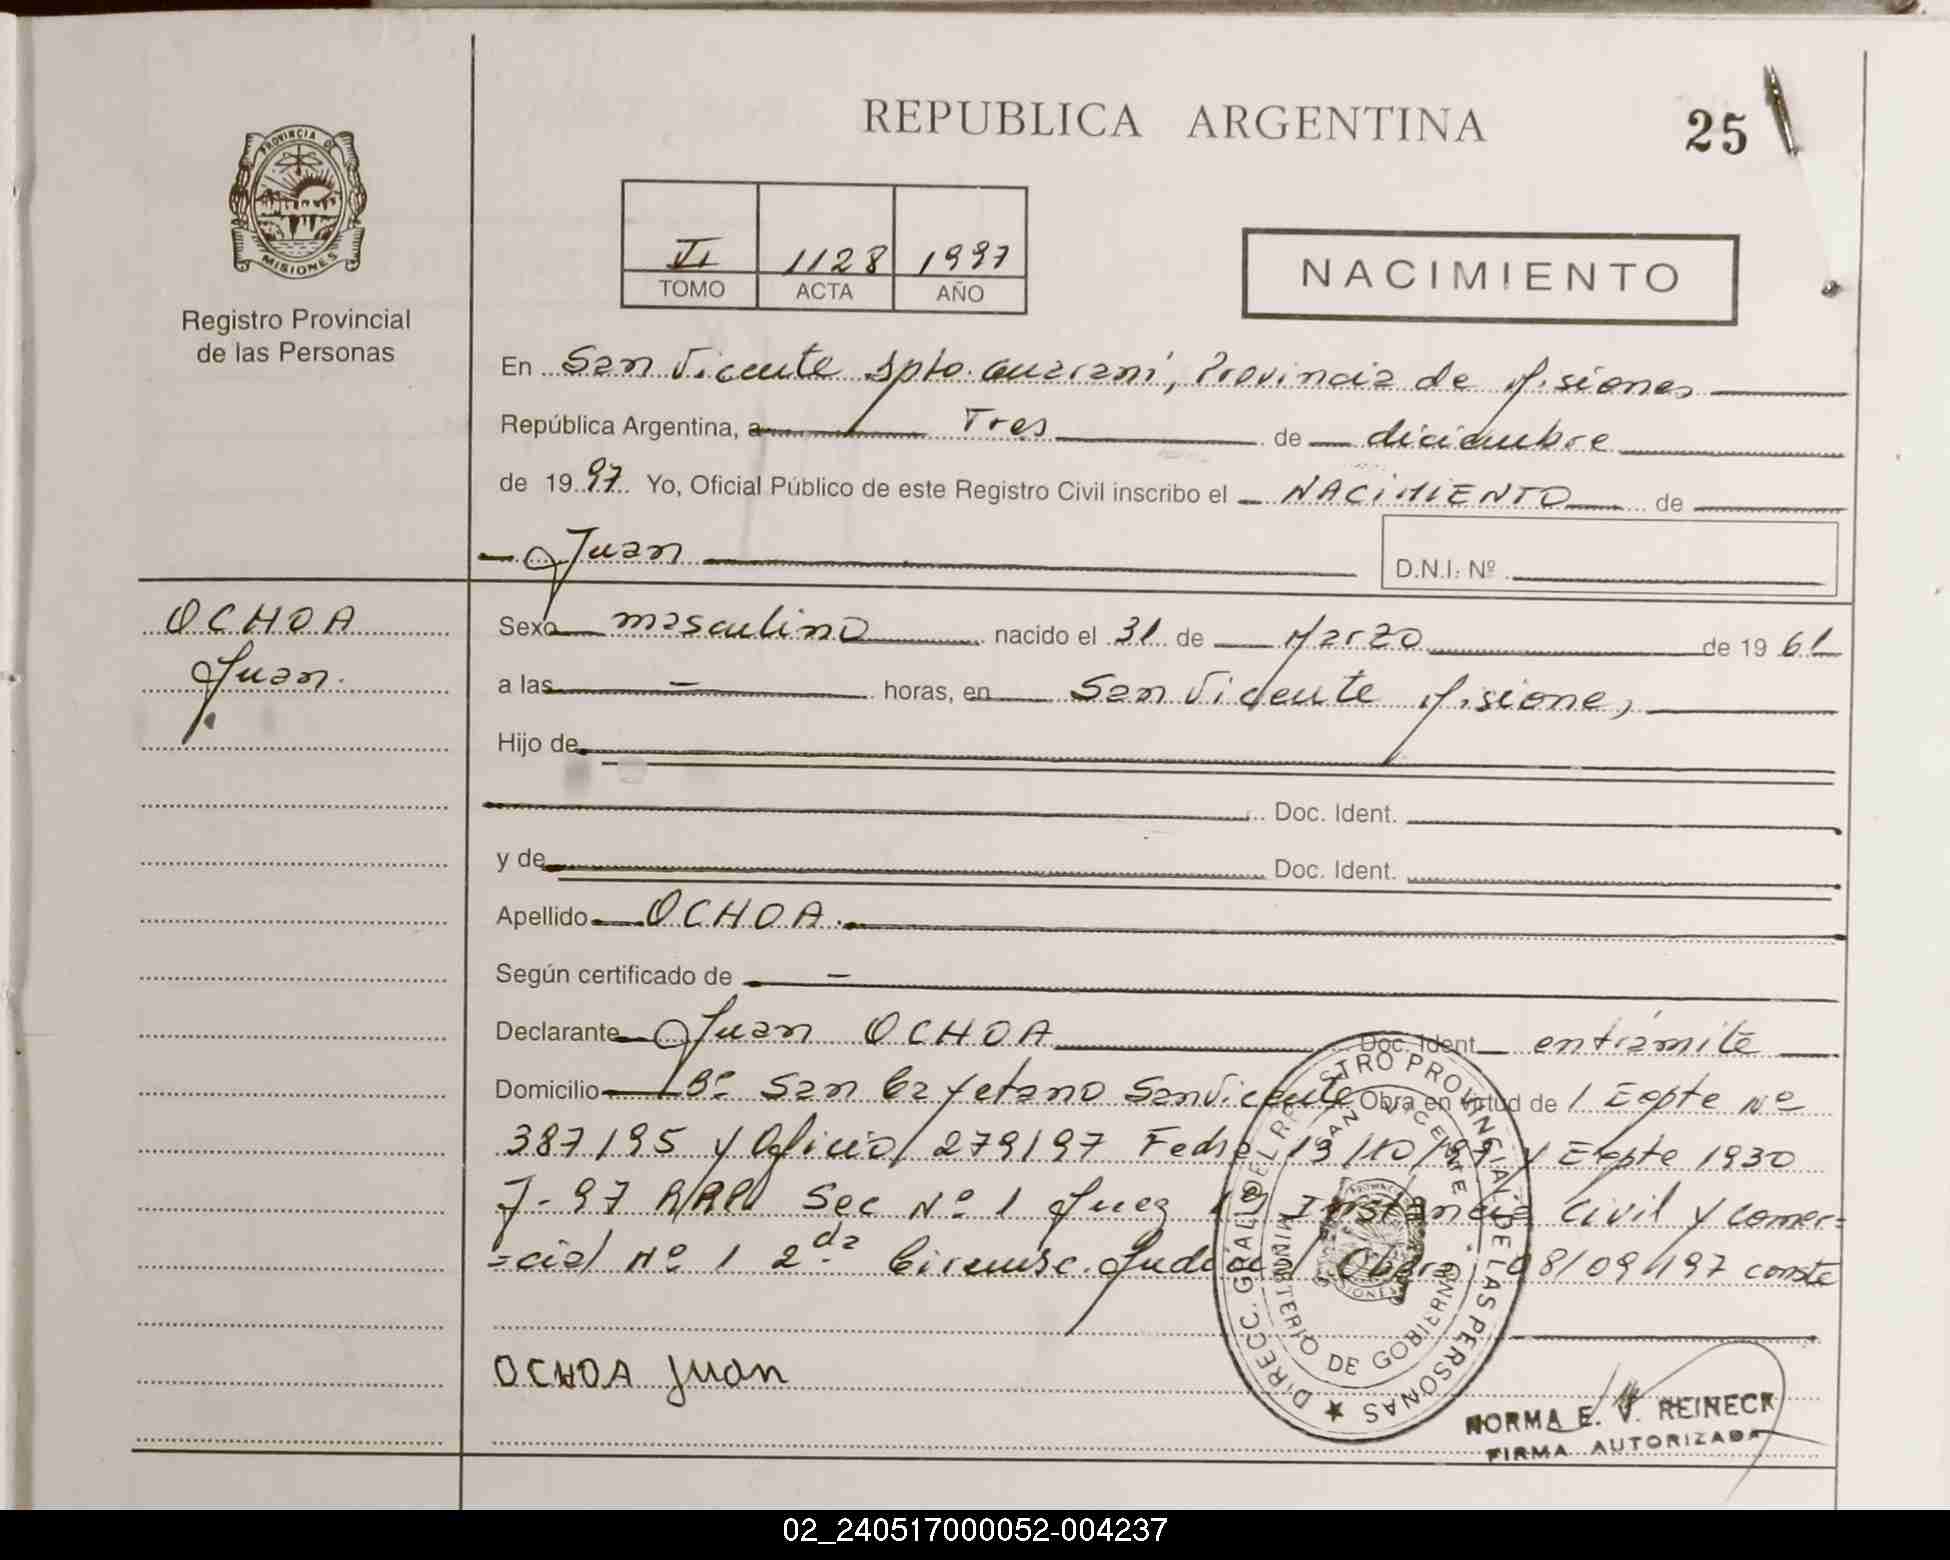 REPUBLICA ARGENTINA
25
PROVINCIA DE
MISIONES
Registro Provincial
de las Personas
VI 1128 1997
TOMO ACTA AÑO
NACIMIENTO
En San Vicente Dpto. Guaraní, Provincia de Misiones
República Argentina, a Tres de diciembre
de 1997 Yo, Oficial Público de este Registro Civil inscribo el NACIMIENTO de
Juan
D.N.I. Nº
OCHOA
Juan.
Sexo masculino nacido el 31 de Marzo de 1961
a las - horas, en San Vicente Misiones
Hijo de
Doc. Ident.
y de Doc. Ident.
Apellido OCHOA.
Según certificado de -
Declarante Juan OCHOA Doc. Ident. entrámite
Domicilio Bº San Cayetano San Vicente Obra en virtud de 1 Expte Nº
387/95 y Oficio 279/97 Fecha 13/10/97 y Expte 1930
J-97 RPP Sec Nº 1 Juez 1ª Instancia Civil y comer=
=cial Nº 1 2da Circunsc. Judicial Oberá 08/09/97 conste
OCHOA Juan
DIRECC. GRAL. DEL REGISTRO PROVINCIAL DE LAS PERSONAS
SAN VICENTE
MINISTERIO DE GOBIERNO
NORMA E. V. REINECK
FIRMA AUTORIZADA
02_240517000052-004237